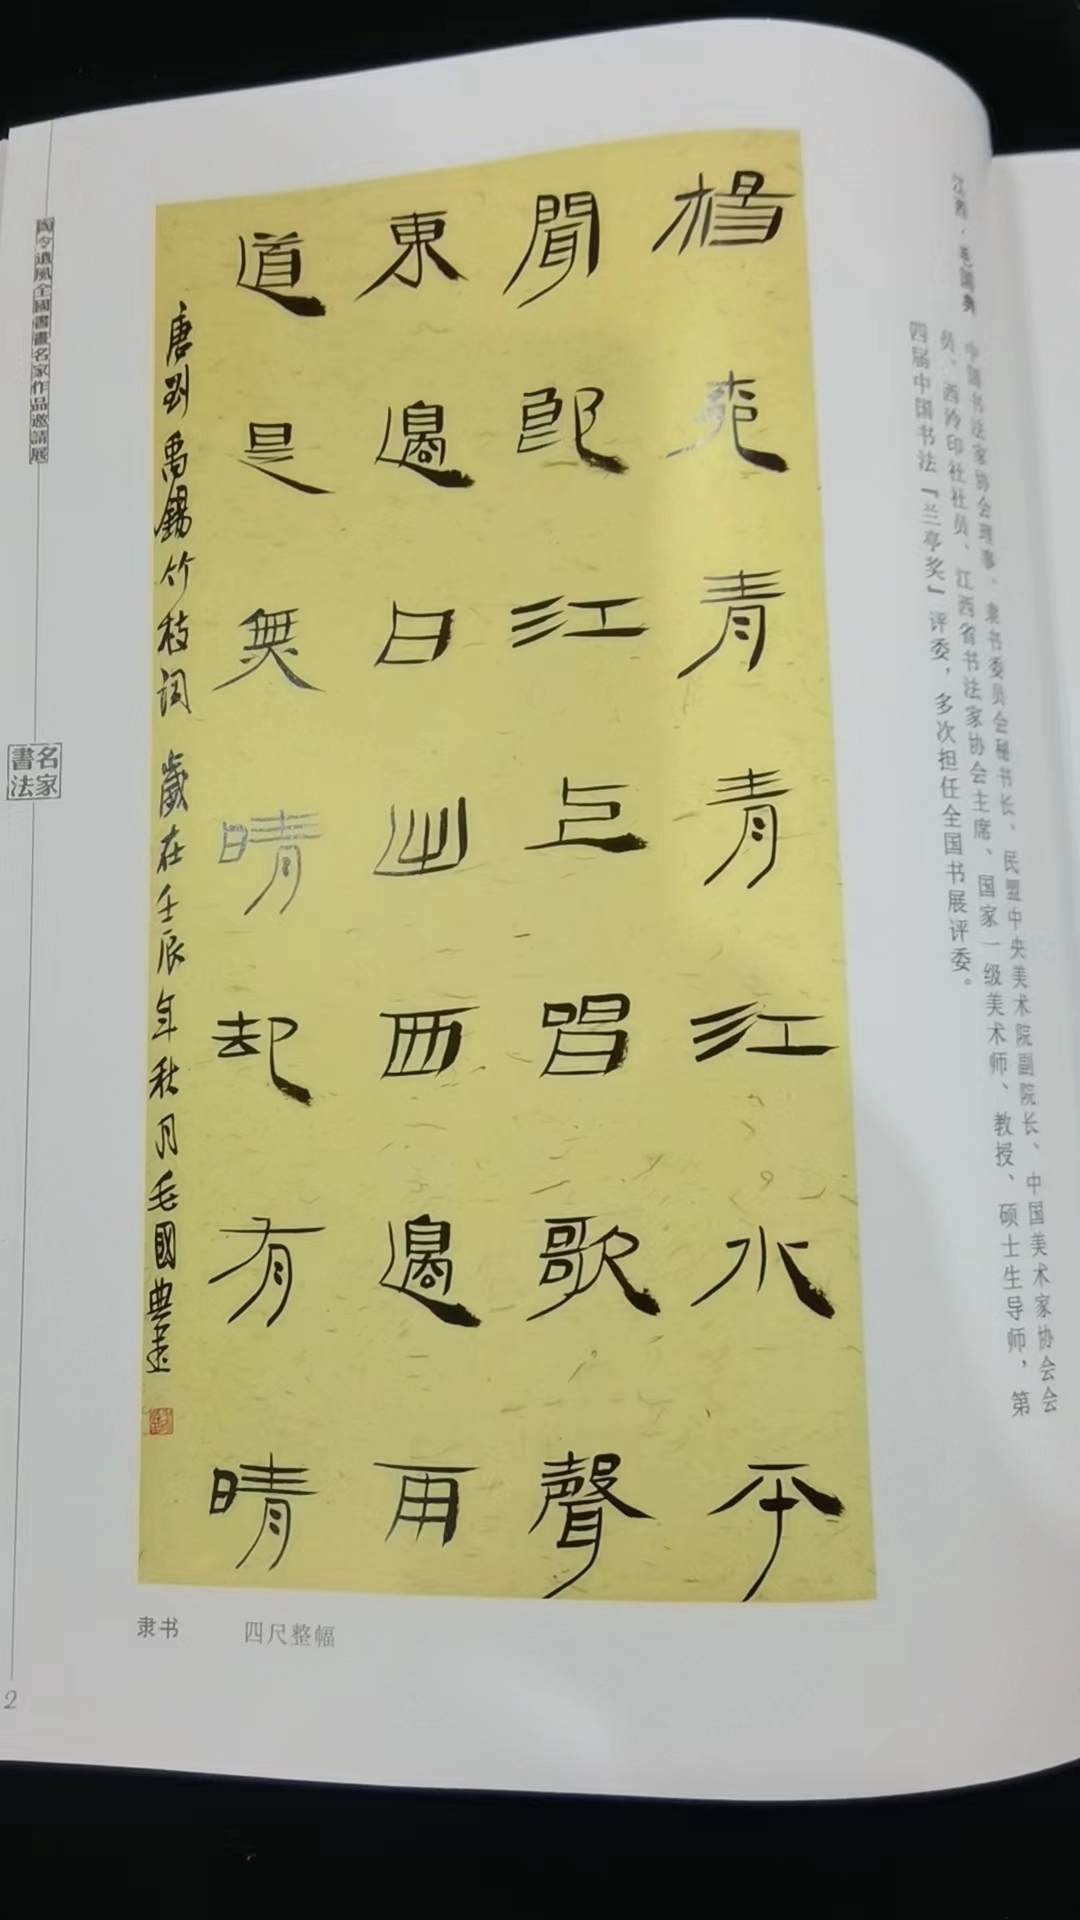 江西·毛国典
中国书法家协会理事、隶书委员会秘书长、民盟中央美术院副院长、中国美术家协会会
员、西泠印社社员、江西省书法家协会主席、国家一级美术师、教授、硕士生导师，第
四届中国书法『兰亭奖』评委，多次担任全国书展评委。
楊柳青青江水平
聞郎江上唱歌聲
東邊日出西邊雨
道是無晴却有晴
唐劉禹錫竹枝詞 歲在壬辰年秋月毛國典書
隶书 四尺整幅
陶令遺風全國書畫名家作品邀請展
名家
書法
2